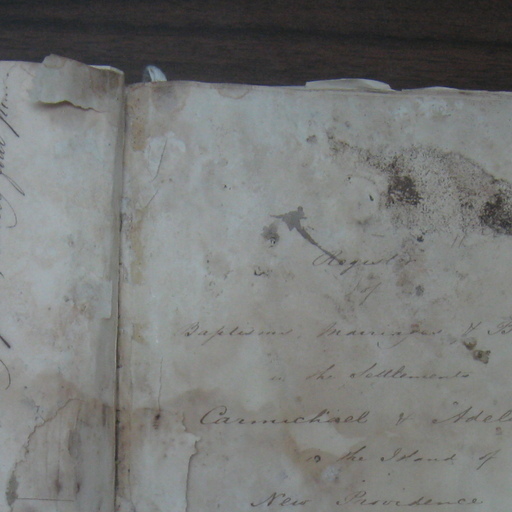 Register
of
Baptisms, Marriages & B
in the Settlements
Carmichael & Adel
in the Island of
New Providence